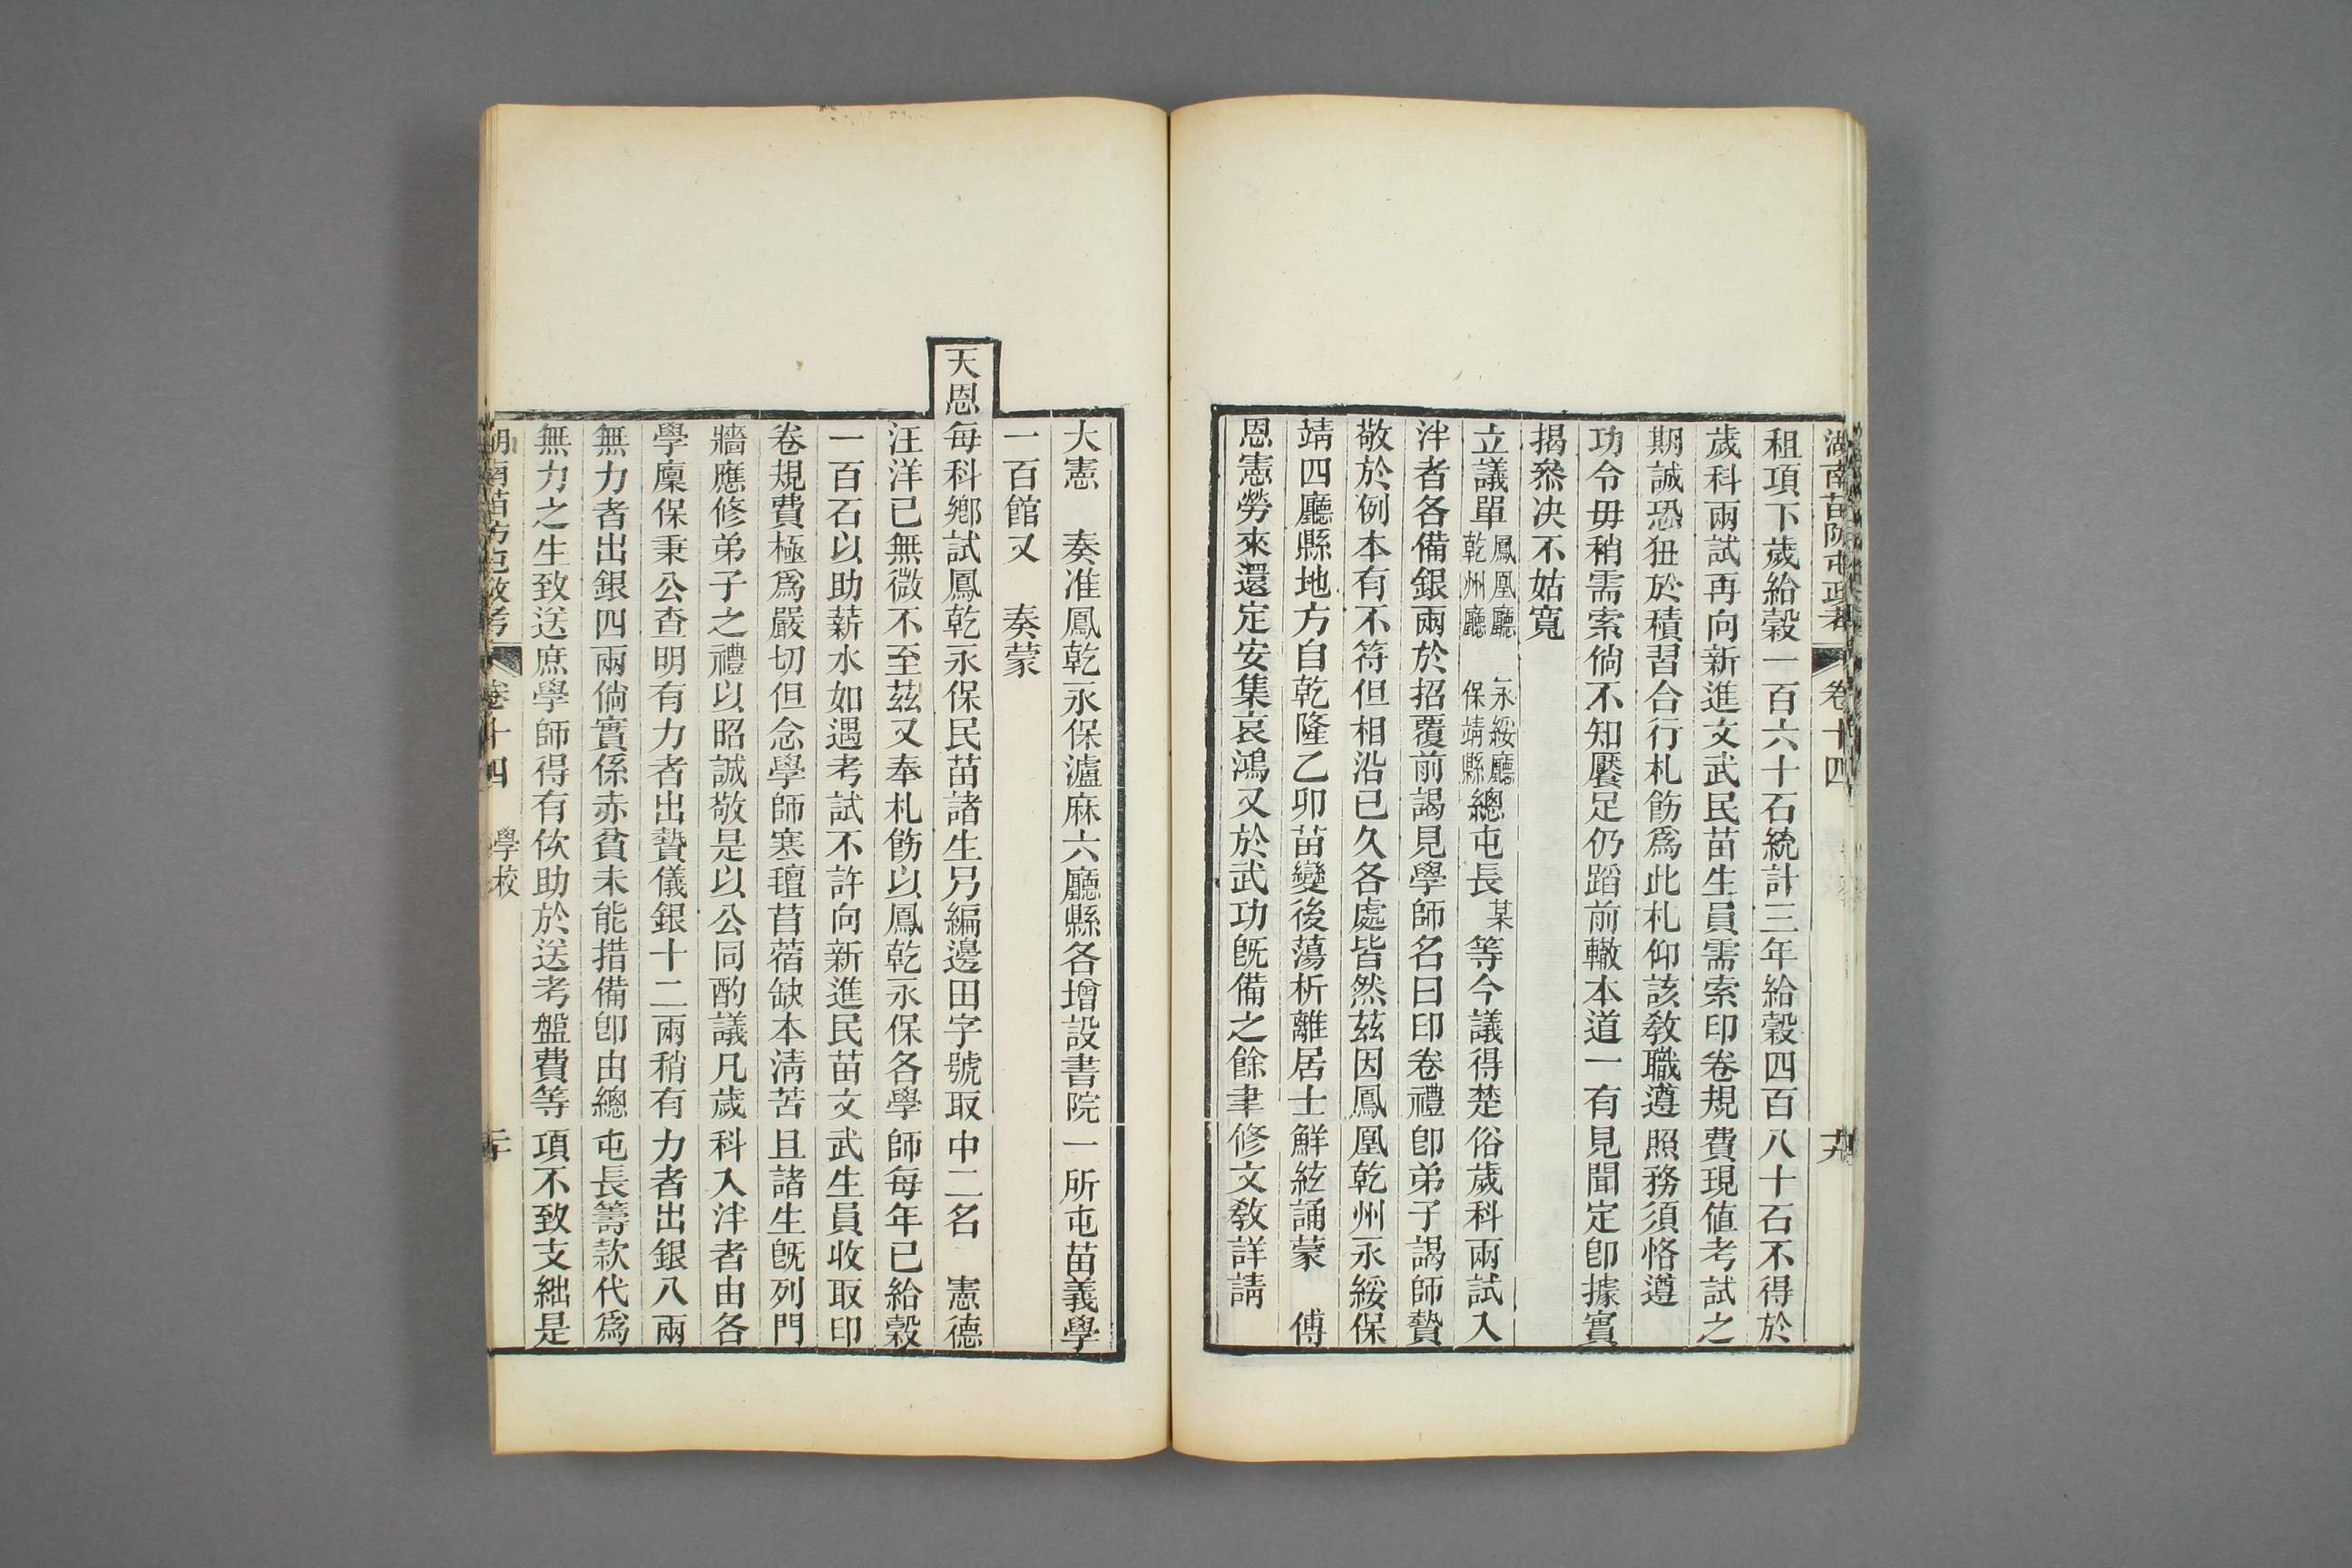 湖南苗防屯政考 卷十四 十九
租項下歲給穀一百六十石統計三年給穀四百八十石不得於
歲科兩試再向新進文武民苗生員需索印卷規費現值考試之
期誠恐狃於積習合行札飭爲此札仰該教職遵照務須恪遵
功令毋稍需索倘不知饜足仍蹈前轍本道一有見聞定卽據實
揭叅决不姑寬
立議單鳳凰廳乾州廳 永綏廳保靖縣總屯長某等今議得楚俗歲科兩試入
泮者各備銀兩於招覆前謁見學師名曰印卷禮卽弟子謁師贄
敬於例本有不符但相沿已久各處皆然茲因鳳凰乾州永綏保
靖四廳縣地方自乾隆乙卯苗變後蕩析離居士鮮絃誦蒙 傅
恩憲勞來還定安集哀鴻又於武功旣備之餘聿修文教詳請
大憲 奏准鳳乾永保瀘麻六廳縣各增設書院一所屯苗義學
一百館又 奏蒙
天恩每科鄉試鳳乾永保民苗諸生另編邊田字號取中二名 憲德
汪洋已無微不至茲又奉札飭以鳳乾永保各學師每年已給穀
一百石以助薪水如遇考試不許向新進民苗文武生員收取印
卷規費極爲嚴切但念學師寒氊苜蓿缺本清苦且諸生旣列門
牆應修弟子之禮以昭誠敬是以公同酌議凡歲科入泮者由各
學廩保秉公查明有力者出贄儀銀十二兩稍有力者出銀八兩
無力者出銀四兩倘實係赤貧未能措備卽由總屯長籌款代爲
無力之生致送庶學師得有佽助於送考盤費等項不致支絀是
湖南苗防屯政考 卷十四 學校 二十